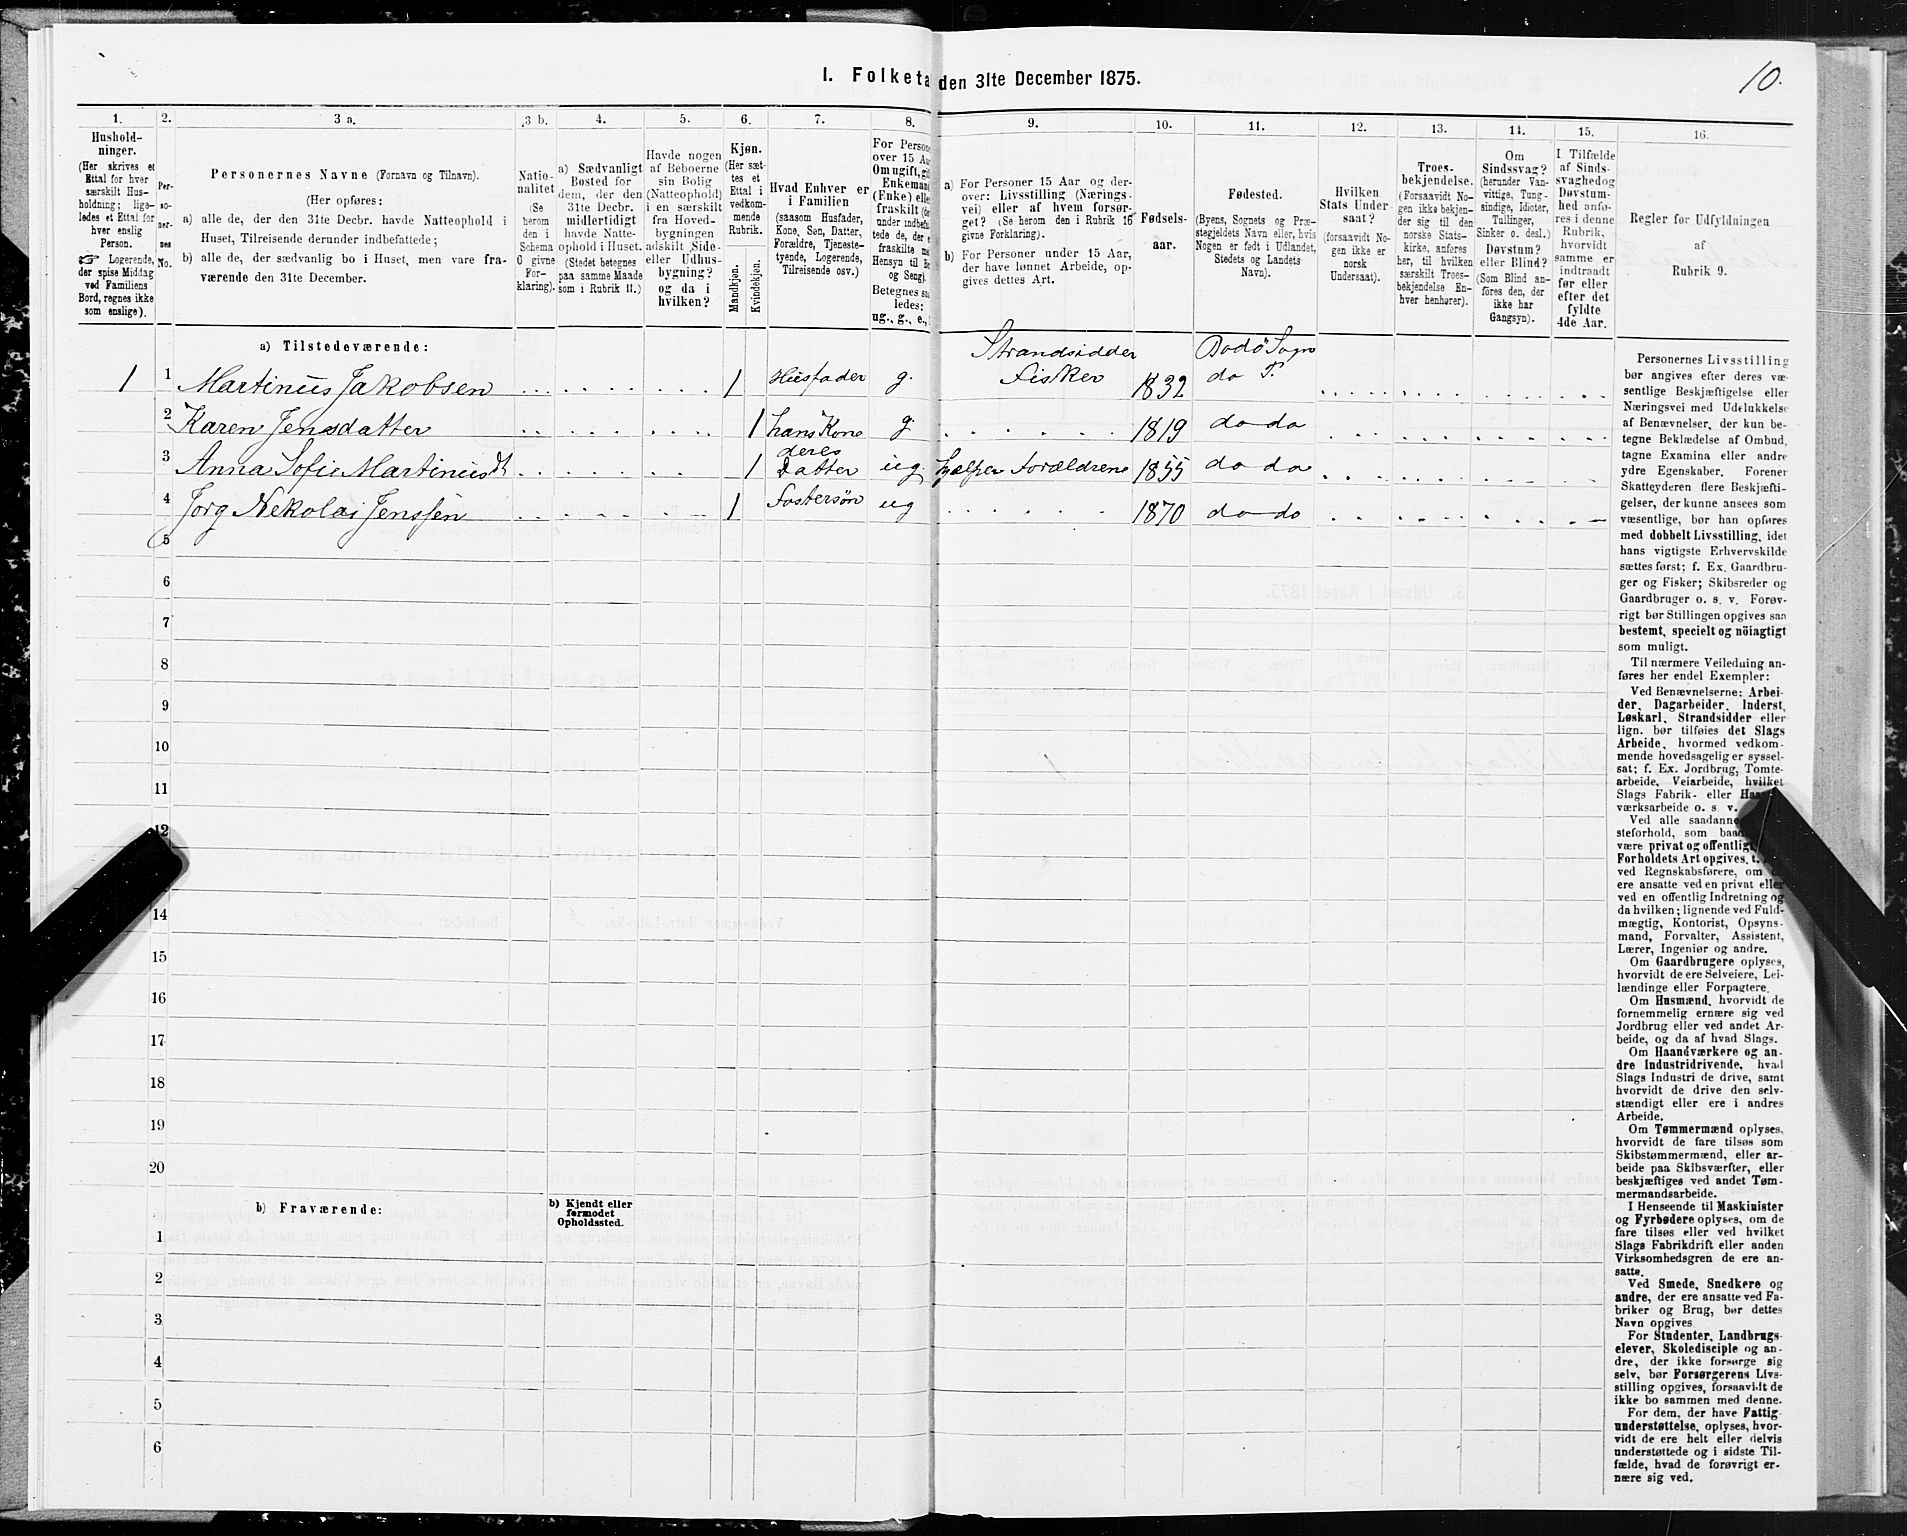 I. Folketa den 31te December 1875.
10.
1.
Hushold-
ninger.
(Her skrives et
Ettal for hver
særskilt Hus-
holdning; lige-
ledes et Ettal for
hver enslig
Person.
☞ Logerende,
der spise Middag
ved Familiens
Bord, regnes ikke
som enslige).
2.
Per-
so-
ner-
nes
No.
3 a.
Personernes Navne (Fornavn og Tilnavn).
(Her opføres:
a) alle de, der den 31te Decbr. havde Natteophold i
Huset, Tilreisende derunder indbefattede;
b) alle de, der sædvanlig bo i Huset, men vare fra-
værende den 31te December.
3 b.
Natio-
nalitet
(Se
herom
den i
Schema
O givne
For-
klaring).
4.
a) Sædvanligt
Bosted for
dem, der den
31te Decbr.
midlertidigt
havde Natte-
ophold i Huset.
(Stedet betegnes
paa samme Maade
som i Rubrik 11.)
5.
Havde nogen
af Beboerne
sin Bolig
(Natteophold)
i en særskilt
fra Hoved-
bygningen
adskilt Side-
eller Udhus-
bygning?
og da i
hvilken?
6.
Kjøn.
(Her sæt-
tes et
Ettal i
vedkom-
mende
Rubrik.
Mandkjøn.
Kvindekjøn.
7.
Hvad Enhver er
i Familien
(saasom Husfader,
Kone, Søn, Datter,
Forældre, Tjeneste-
tyende, Logerende,
Tilreisende osv.)
8.
For Persone
over 15 Aa
Om ugift, gi
Enkemand
(Enke) elle
fraskilt (de
under indbefa
tede de, der e
fraskilte me
Hensyn til Bo
og Seng).
Betegnes saa
ledes:
ug., g., e.,
9.
a) For Personer 15 Aar og der-
over: Livsstilling (Nærings-
vei) eller af hvem forsør-
get? (Se herom den i Rubrik 16
givne Forklaring).
b) For Personer under 15 Aar,
der have lønnet Arbeide, op-
gives dettes Art.
10.
Fødsels-
aar.
11.
Fødested.
(Byens, Sognets og Præ-
stegjeldets Navn eller, hvis
Nogen er født i Udlandet,
Stedets og Landets
Navn).
12.
Hvilken
Stats Under
saat?
(forsaavidt No-
gen ikke er
norsk
Undersaat).
13.
Troes-
bekjendelse.
(Forsaavidt No-
gen ikke bekjen-
der sig til den
norske Stats-
kirke, anføres
her, til hvilken
særskilt Troes-
bekjendelse En-
hver henhører).
14.
Om
Sindssvag?
(herunder Van-
vittige, Tung-
sindige, Idioter,
Tullinger,
Sinker o. desl.)
Døvstum?
eller Blind?
(Som Blind an-
føres den, der
ikke har
Gangsyn).
15.
I Tilfælde
af Sinds-
svaghedog
Døvstum-
hed anfø-
res i denne
Rubrik,
hvorvidt
samme er
indtraadt
før eller
efter det
fyldte
4de Aar.
16.
Regler for Udfyldningen
af
Rubrik 9.
a) Tilstedeværende:
Strandsidder Bodø Sogn
1 1 Martinus Jakobsen 1 Husfader g. Fisker 1832 do P.
2 Karen Jensdatter 1 hans Kone g. 1819 do do
deres
3 Anna Sofie Martinusdt 1 Datter ug. hjælper Forældrene 1855 do do
4 Jorg Nekolai Jenssen 1 Fostersøn ug 1870 do do
5
6
7
8
9
10
11
12
14
15
16
17
18
19
20
b) Fraværende:
b) Kjendt eller
formodet
Opholdssted.
1
2
3
4
5
6
Personernes Livsstilling
bør angives efter deres væ-
sentlige Beskjæftigelse eller
Næringsvei med Udelukkelse
af Benævnelser, der kun be-
tegne Beklædelse af Ombud,
tagne Examina eller andre
ydre Egenskaber. Forener
Skatteyderen flere Beskjæfti-
gelser, der kunne ansees som
væsentlige, bør han opføres
med dobbelt Livsstilling, idet
hans vigtigste Erhvervskilde
sættes først; f. Ex. Gaardbru-
ger og Fisker; Skibsreder og
Gaardbruger o. s. v. Forøv-
rigt bør Stillingen opgives saa
bestemt, specielt og nöiagtigt
som muligt.
Til nærmere Veiledning an-
føres her endel Exempler:
Ved Benævnelserne: Arbei-
der, Dagarbeider, Inderst,
Løskarl, Strandsidder eller
lign. bør tilføies det Slags
Arbeide, hvormed vedkom-
mende hovedsagelig er syssel-
sat; f. Ex. Jordbrug, Tomte-
arbeide, Veiarbeide, hvilket
Slags Fabrik- eller Haa
værksarbeide o. s. v.
Ved alle saadanne
steforhold, som baa
være privat og offentligt,
Forholdets Art opgives, t.
ved Regnskabsførere, om
ere ansatte ved en privat eller
ved en offentlig Indretning og
da hvilken; lignende ved Fuld-
mægtig, Kontorist, Opsyns-
mand, Forvalter, Assistent,
Lærer, Ingeniør og andre.
Om Gaardbrugere oplyses,
hvorvidt de ere Selveiere, Lei-
lændinge eller Forpagtere.
Om Husmænd, hvorvidt de
fornemmelig ernære sig ved
Jordbrug eller ved andet Ar-
beide, og da af hvad Slags.
Om Haandværkere og an-
dre Industridrivende, hvad
Slags Industri de drive, samt
hvorvidt de drive den selv-
stændigt eller ere i andres
Arbeide.
Om Tømmermænd oplyses,
hvorvidt de fare tilsøs som
Skibstømmermænd, eller ar-
beide paa Skibsværfter, eller
beskjæftiges ved andet Tøm-
mermandsarbeide.
I Henseende til Maskinister
og Fyrbødere oplyses, om de
fare tilsøs eller ved hvilket
Slags Fabrikdrift eller anden
Virksomhedsgren de ere an-
satte.
Ved Smede, Snedkere og
andre, der ere ansatte ved Fa-
briker og Brug, bør dettes
Navn opgives.
For Studenter, Landbrugs-
elever, Skoledisciple og an-
dre, der ikke forsørge sig
selv, bør Forsørgerens Livs-
stilling opgives, forsaavidt de
ikke bo sammen med denne.
For dem, der have Fattig-
understøttelse, oplyses, hvor-
vidt de ere helt eller delvis
understøttede og i sidste Til-
fælde, hvad de forøvrigt er-
nære sig ved.